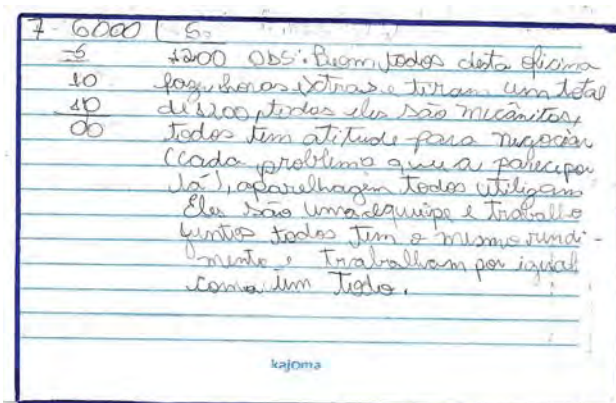 7- 6000 | 5
-5 1200 OBS: Buom todos desta oficina
10 fazem horas extras e tiram um total
10 de 1200, todos eles são mecânicos,
00 todos tem atitude para negociar
(cada problema que a parece por
lá), aparelhagem todos utilizam
Eles são uma equipe e trabalho
juntos todos tem o mesmo rundi-
mento e trabalham por igual
como um todo.
kajoma